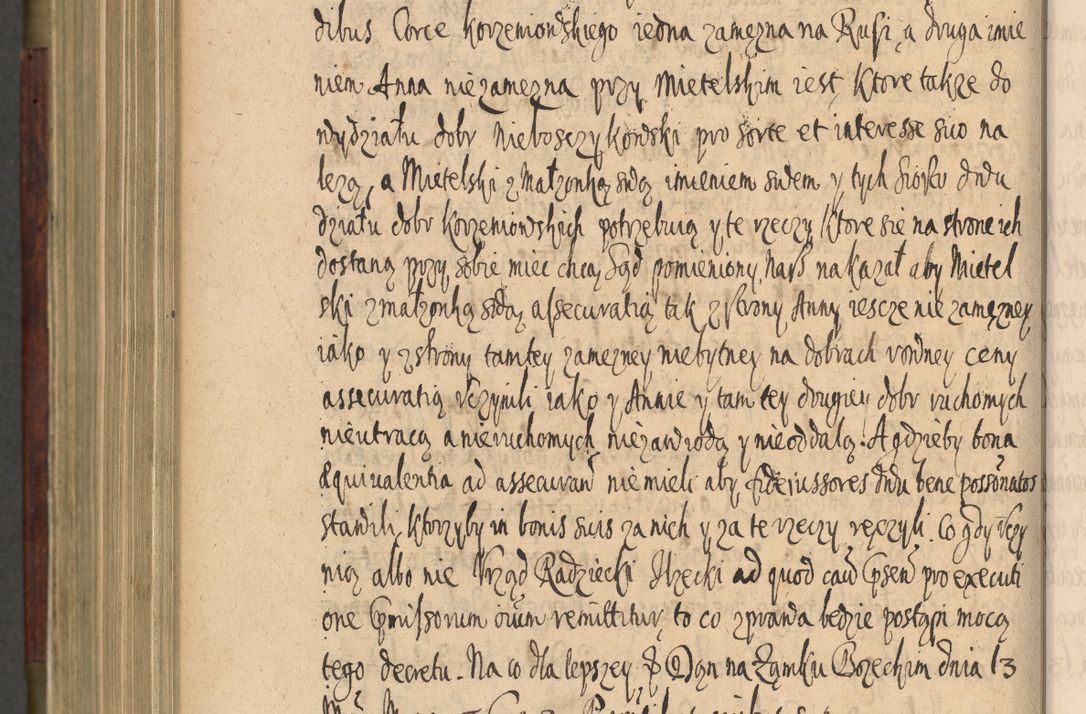 dibus Corce korzeniowskiego iedna zamęzna na Rusi, a druga imie
niem Anna niezamezna przy Mietelskim iest, ktore takze do
wydziału dobr nieboszczykowski pro sorte et interesse suo na
lezą, a Mietelski z Małzonką swoą imieniem swem y tych
działu dobr korzeniowskich potrzebuią y te rzeczy ktore sie na strone ich
dostaną przy sobie miec chcą, Sąd pomieniony nasz nakazał aby Mietel
ski z małzonką swoą assecuratią tak z strony Anny iescze nie zamęzney
iako y z strony tamtey zamezney niebytney na dobrach rowney ceny
assecuratią vczynili iako y Annie y tamtey drugiey dobr ruchomych
nieutracą a nieruchomych niezawiodą y nieoddalą. A gdzieby bona
Æquivalentia ad assecurand niemieli aby fideiussores bene possonatos
stawili, ktorzyby in bonis suis za nich y za te rzeczy ręczyli. Co gdy vczy
nią albo nie Vrząd Radziecki Ilzecki ad quod cau pro executi
one remittitur, to co z prawa bedzie postąpi mocą
tego decretu. Na co dla lepszey na Zamku Bozechim dnia 13